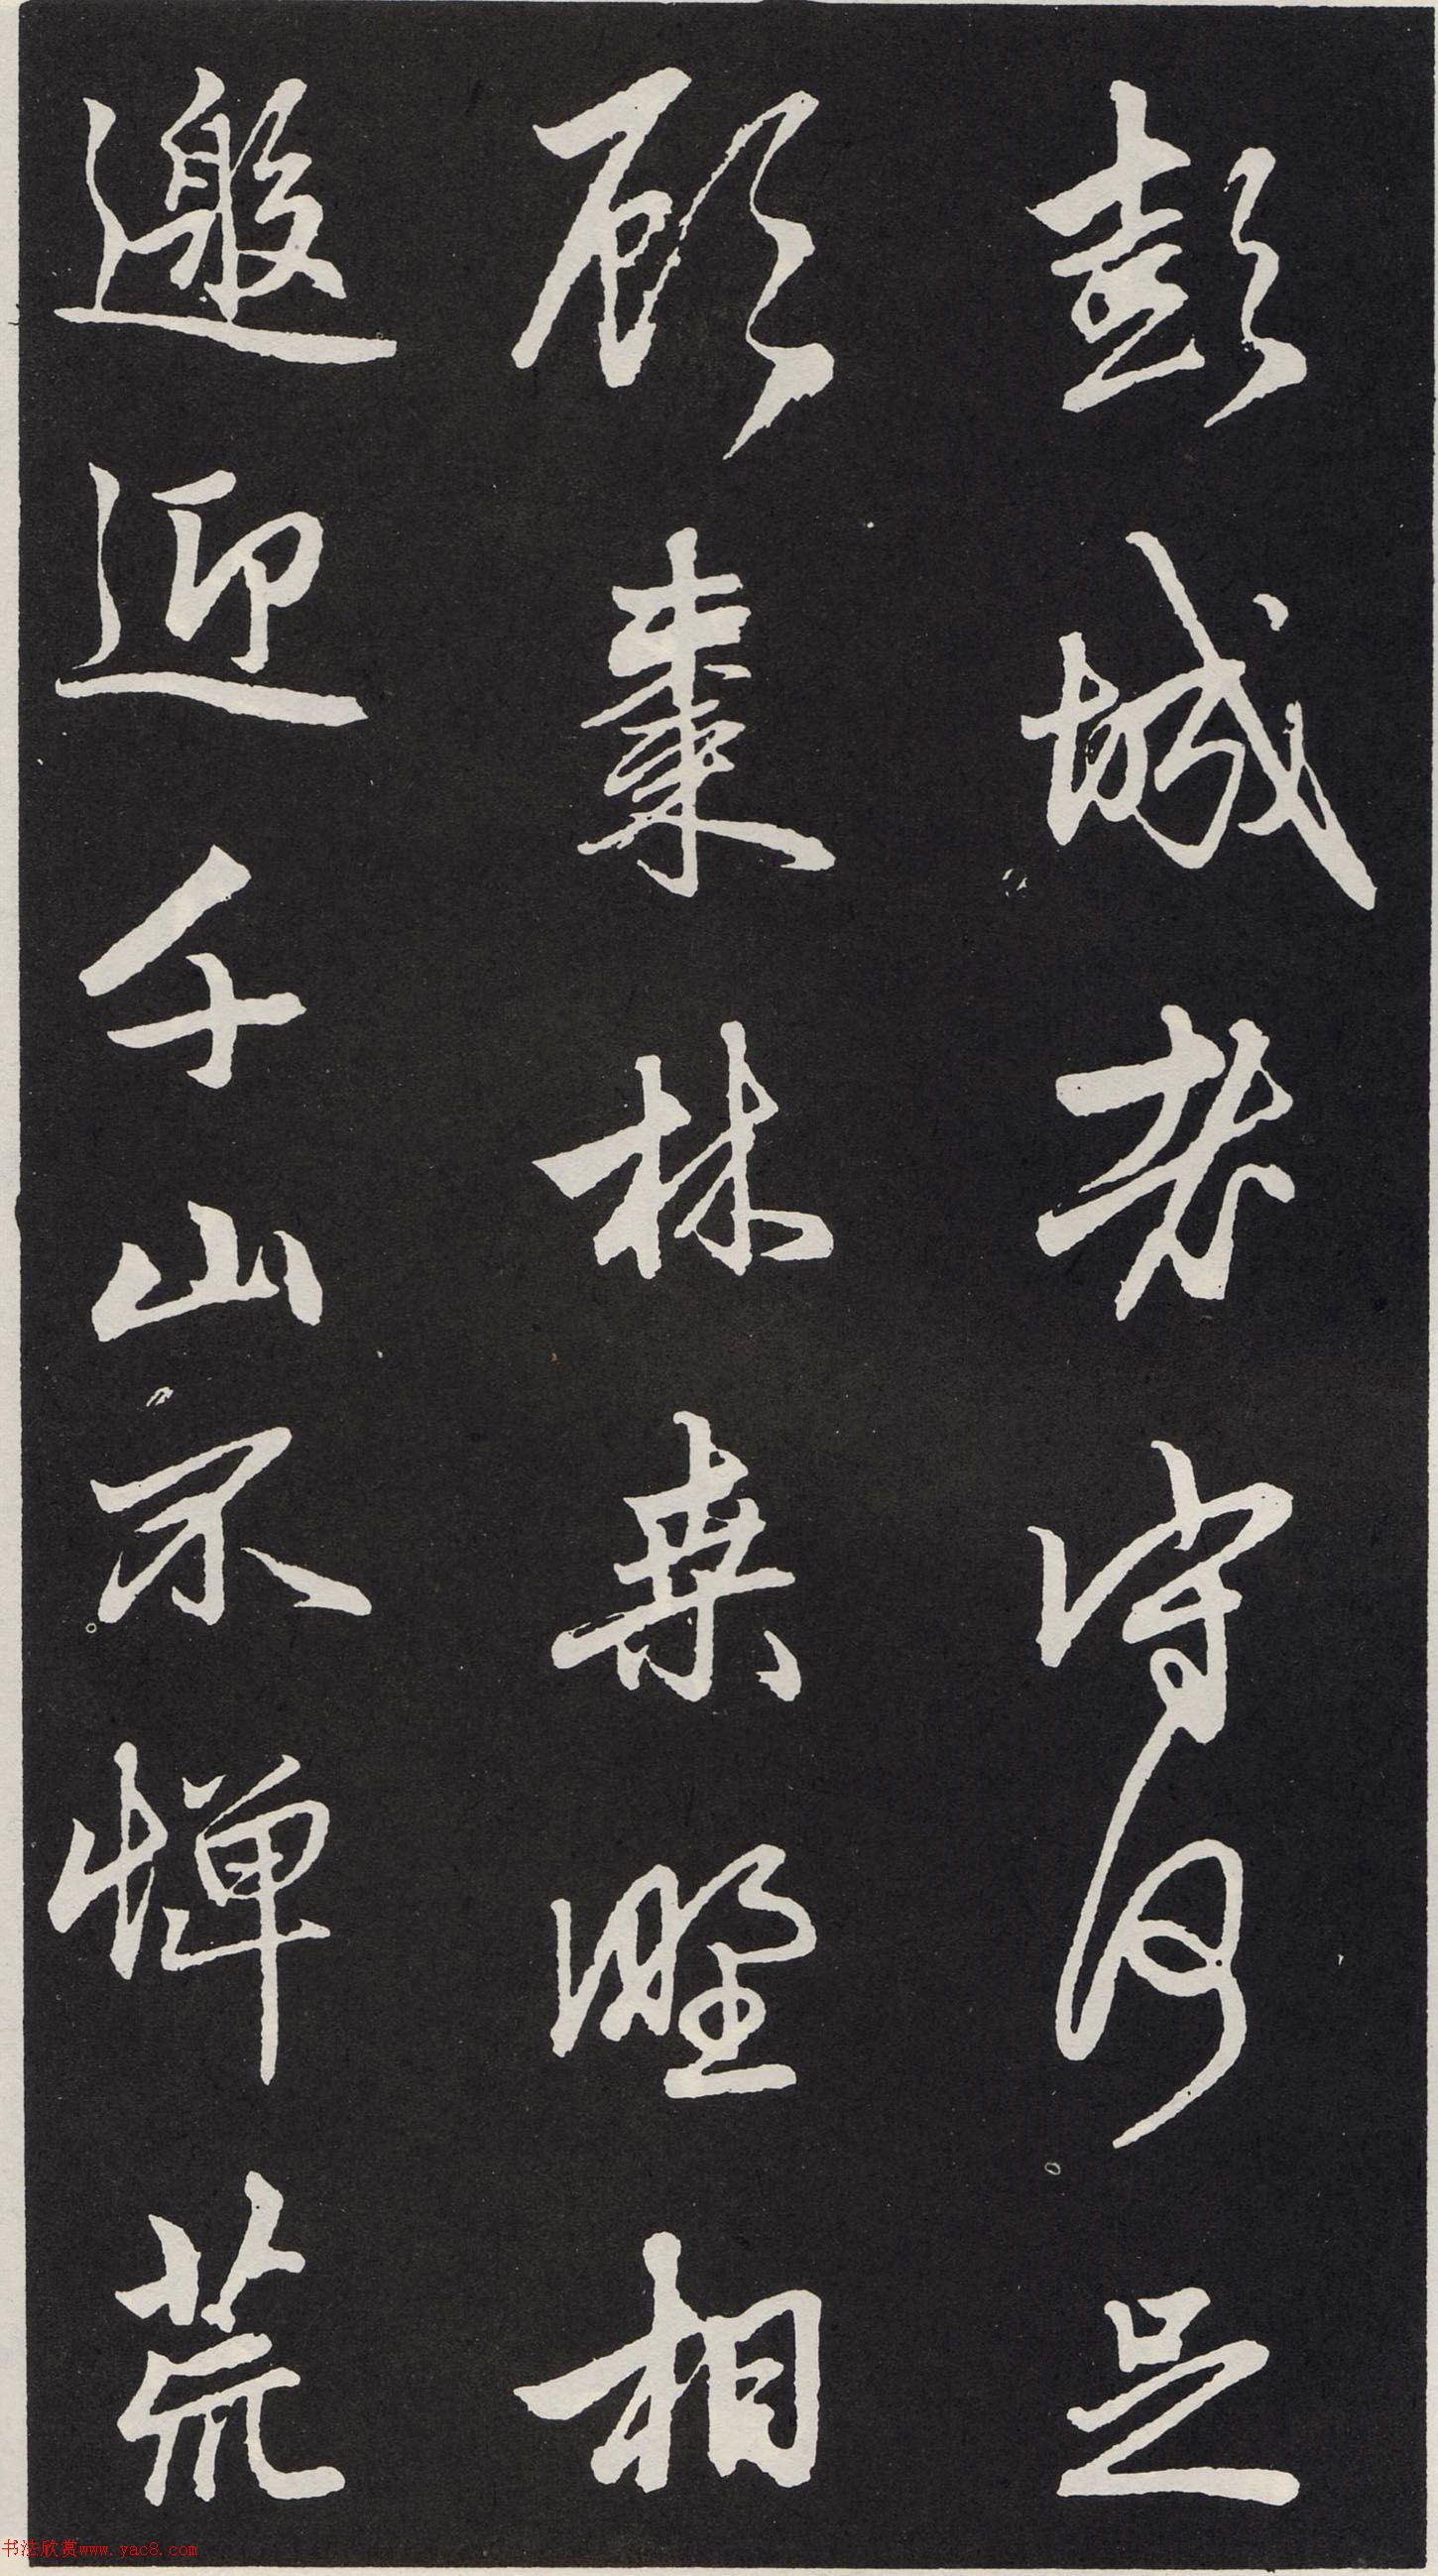 彭城老守何足
顧棗林桑野相
邀迎千山不憚荒
书法欣赏www.yac8.com